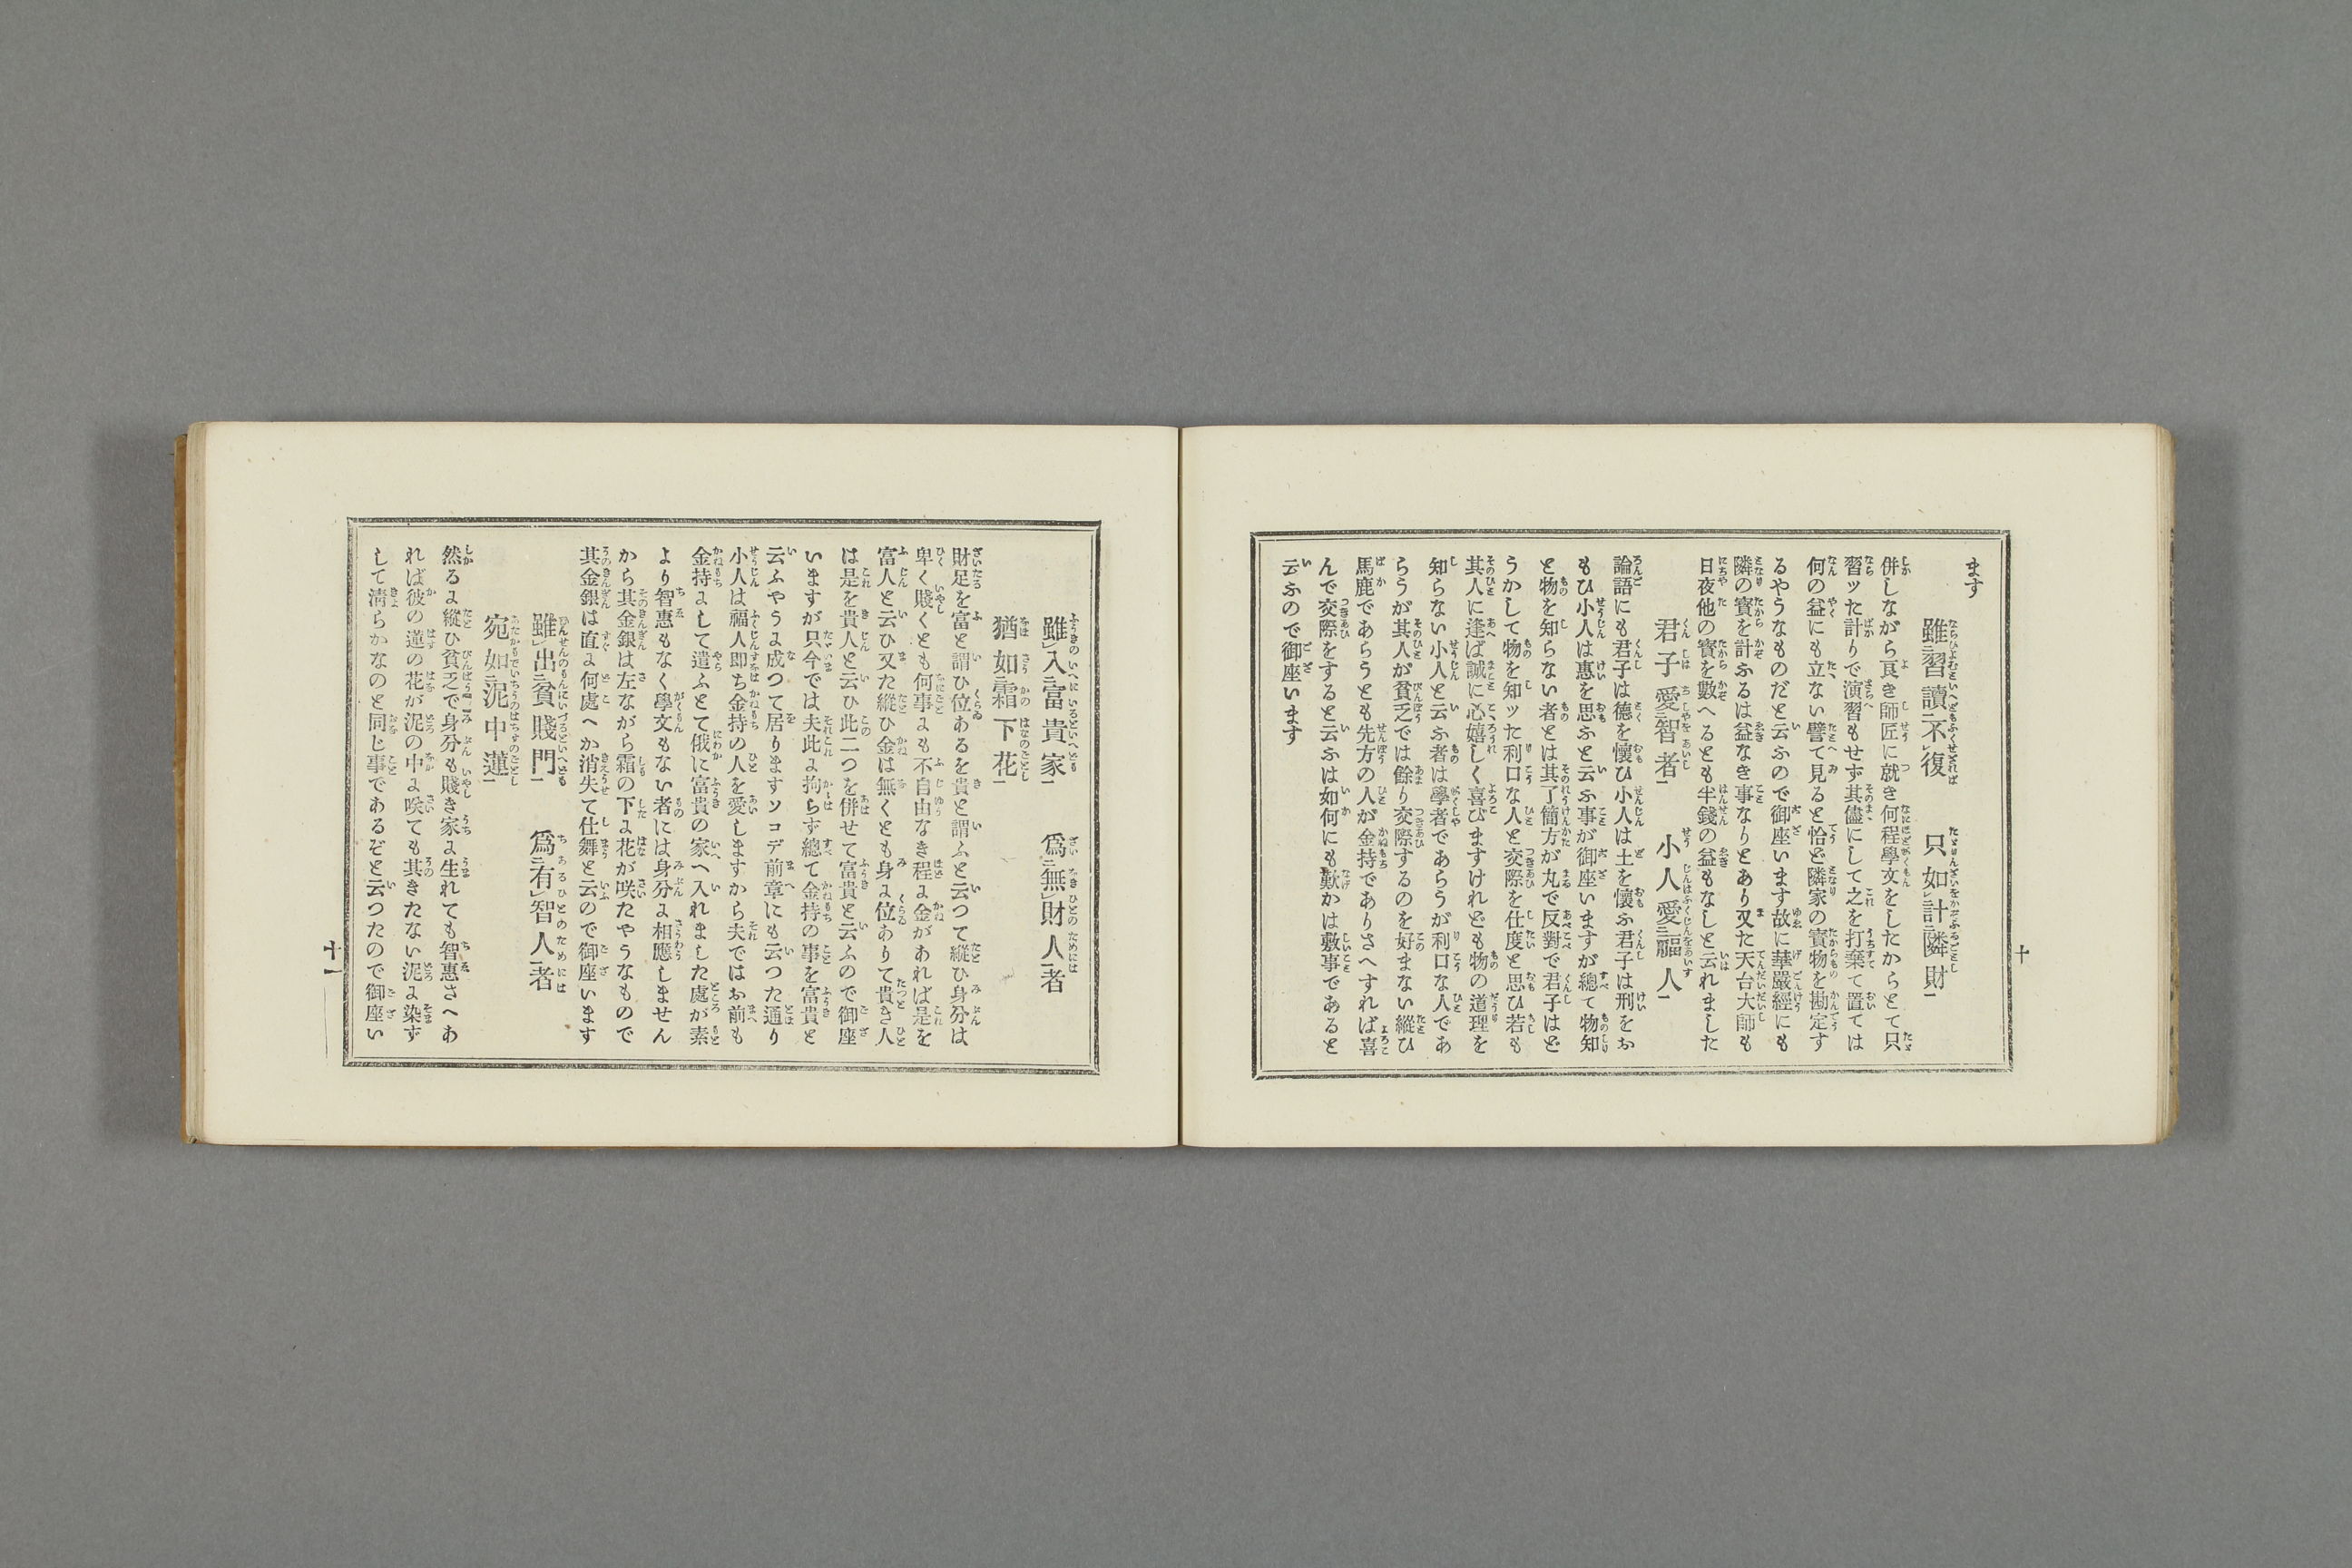 ます
雖習讀不復　只如計隣財
併しながら良き師匠に就き何程學文をしたからとて只
習ッた計りで演習もせず其儘にして之を打棄て置ては
何の益にも立ない譬て見ると恰ど隣家の寳物を勘定す
るやうなものだと云ふので御座います故に華嚴經にも
隣の寳を計ふるは益なき事なりとあり又た天台大師も
日夜他の寳を數へるとも半錢の益もなしと云れました
君子愛智者　小人愛福人
論語にも君子は德を懷ひ小人は土を懷ふ君子は刑をお
もひ小人は惠を思ふと云ふ事が御座いますが總て物知
と物を知らない者とは其了簡方が丸で反對で君子はど
うかして物を知ッた利口な人と交際を仕度と思ひ若も
其人に逢ば誠に心嬉しく喜びますけれども物の道理を
知らない小人と云ふ者は學者であらうが利口な人であ
らうが其人が貧乏では餘り交際するのを好まない縱ひ
馬鹿であらうとも先方の人が金持でありさへすれば喜
んで交際をすると云ふは如何にも歎かは敷事であると
云ふので御座います
十
雖入富貴家　爲無財人者
猶如霜下花
財足を富と謂ひ位あるを貴と謂ふと云つて縱ひ身分は
卑く賤くとも何事にも不自由なき程に金があれば是を
富人と云ひ又た縱ひ金は無くとも身に位ありて貴き人
は是を貴人と云ひ此二つを併せて富貴と云ふので御座
いますが只今では夫此に拘らず總て金持の事を富貴と
云ふやうに成つて居りますソコデ前章にも云つた通り
小人は福人即ち金持の人を愛しますから夫ではお前も
金持にして遣ふとて俄に富貴の家へ入れました處が素
より智惠もなく學文もない者には身分に相應しません
から其金銀は左ながら霜の下に花が咲たやうなもので
其金銀は直に何處へか消失て仕舞と云ので御座います
雖出貧賤門　爲有智人者
宛如泥中蓮
然るに縱ひ貧乏で身分も賤き家に生れても智惠さへあ
れば彼の蓮の花が泥の中に咲ても其きたない泥に染ず
して淸らかなのと同じ事であるぞと云つたので御座い
十一